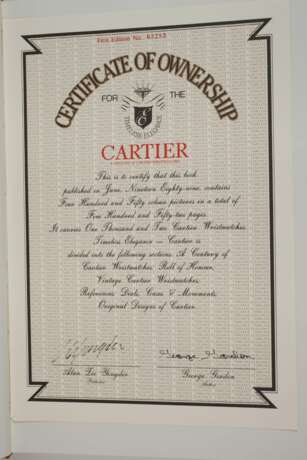 First Edition No.
CERTIFICATE OF OWNERSHIP
FOR THE
TIMELESS ELEGANCE
CARTIER
A CENTURY OF CARTIER WRISTWATCHES
This is to certify that this book
published in June, Nineteen Eighty-nine, contains
Four Hundred and Fifty colour pictures in a total of
Four Hundred and Fifty-two pages.
It covers One Thousand and Two Cartier Wristwatches.
Timeless Elegance — Cartier is
divided into the following sections. A Century of
Cartier Wristwatches; Roll of Honour;
Vintage Cartier Wristwatches;
References: Dials, Cases & Movements;
Original Designs of Cartier.
George Gordon
George Gordon
Author